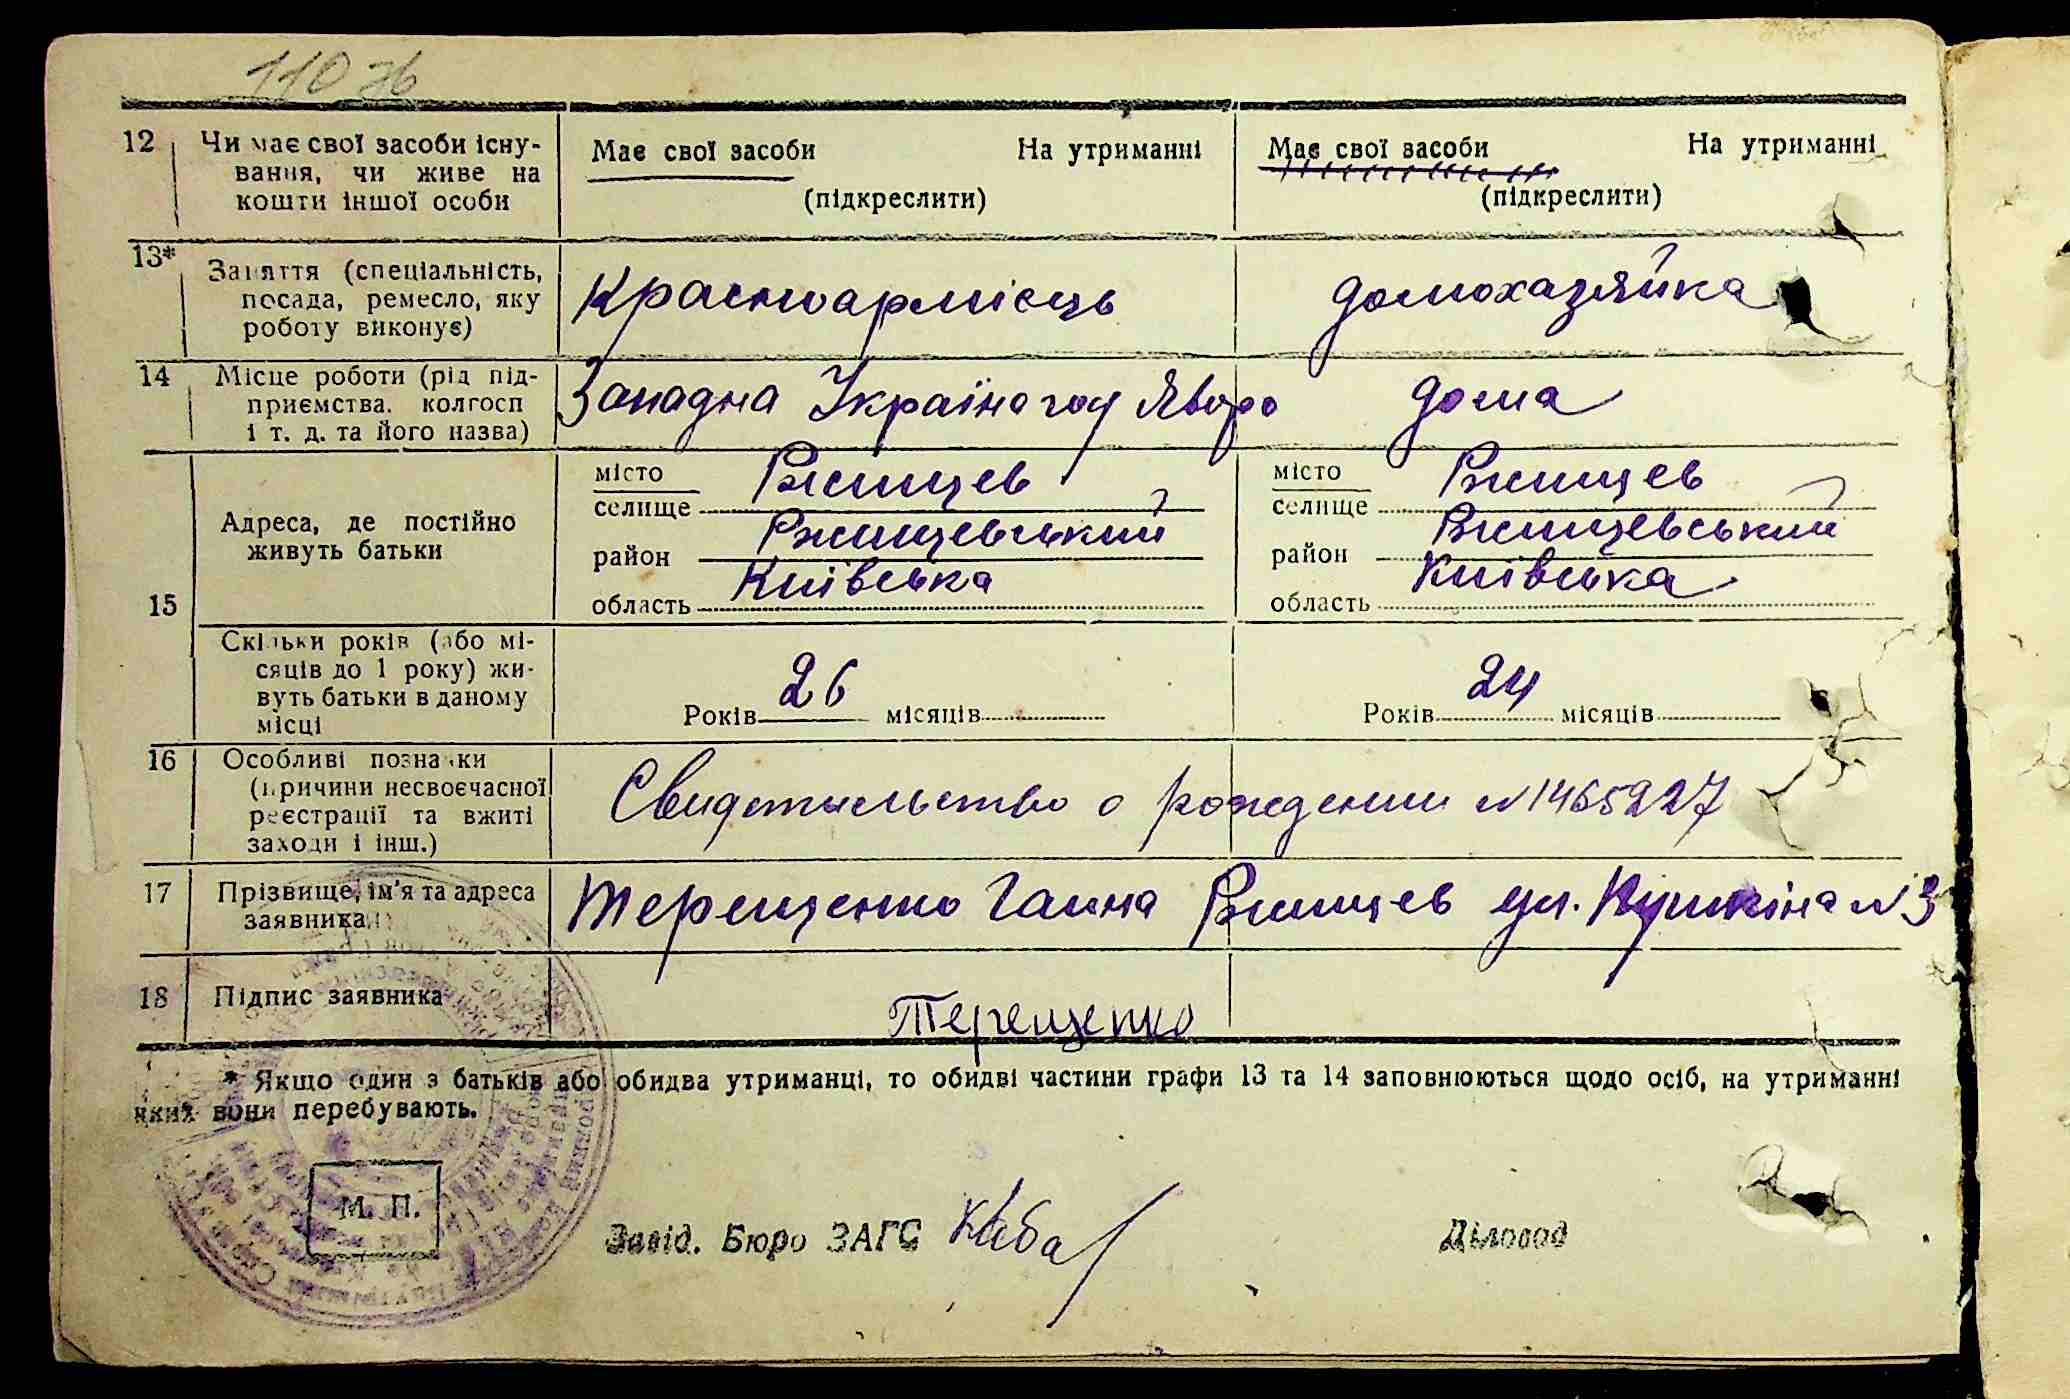 110 зв
12 Чи має свої засоби існу- Має свої засоби На утриманні Має свої засоби На утриманні
вання, чи живе на
кошти іншої особи (підкреслити) (підкреслити)
13* Заняття (спеціальність,
посада, ремесло, яку Красноармієць домохазяйка
роботу виконує)
14 Місце роботи (рід під-
приємства, колгосп Западна Україна Яворо дома
і т. д. та його назва)
місто Ржищев місто Ржищев
селище селище
Адреса, де постійно
живуть батьки район Ржищевський район Ржищевський
15 область Київська область Київська
Скільки років (або мі-
сяців до 1 року) жи-
вуть батьки в даному Років 26 місяців Років 24 місяців
місці
16 Особливі познаки
(причини несвоєчасної Свидетельство о рождении №1465227
реєстрації та вжиті
заходи і інш.)
17 Прізвище, ім'я та адреса Терещенко Ганна Ржищев ул. Пушкіна №3
заявника
18 Підпис заявника Терещенко
* Якщо один з батьків або обидва утриманці, то обидві частини графи 13 та 14 заповнюються щодо осіб, на утриманні
яких вони перебувають.
М. П.
Завід. Бюро ЗАГС Діловод